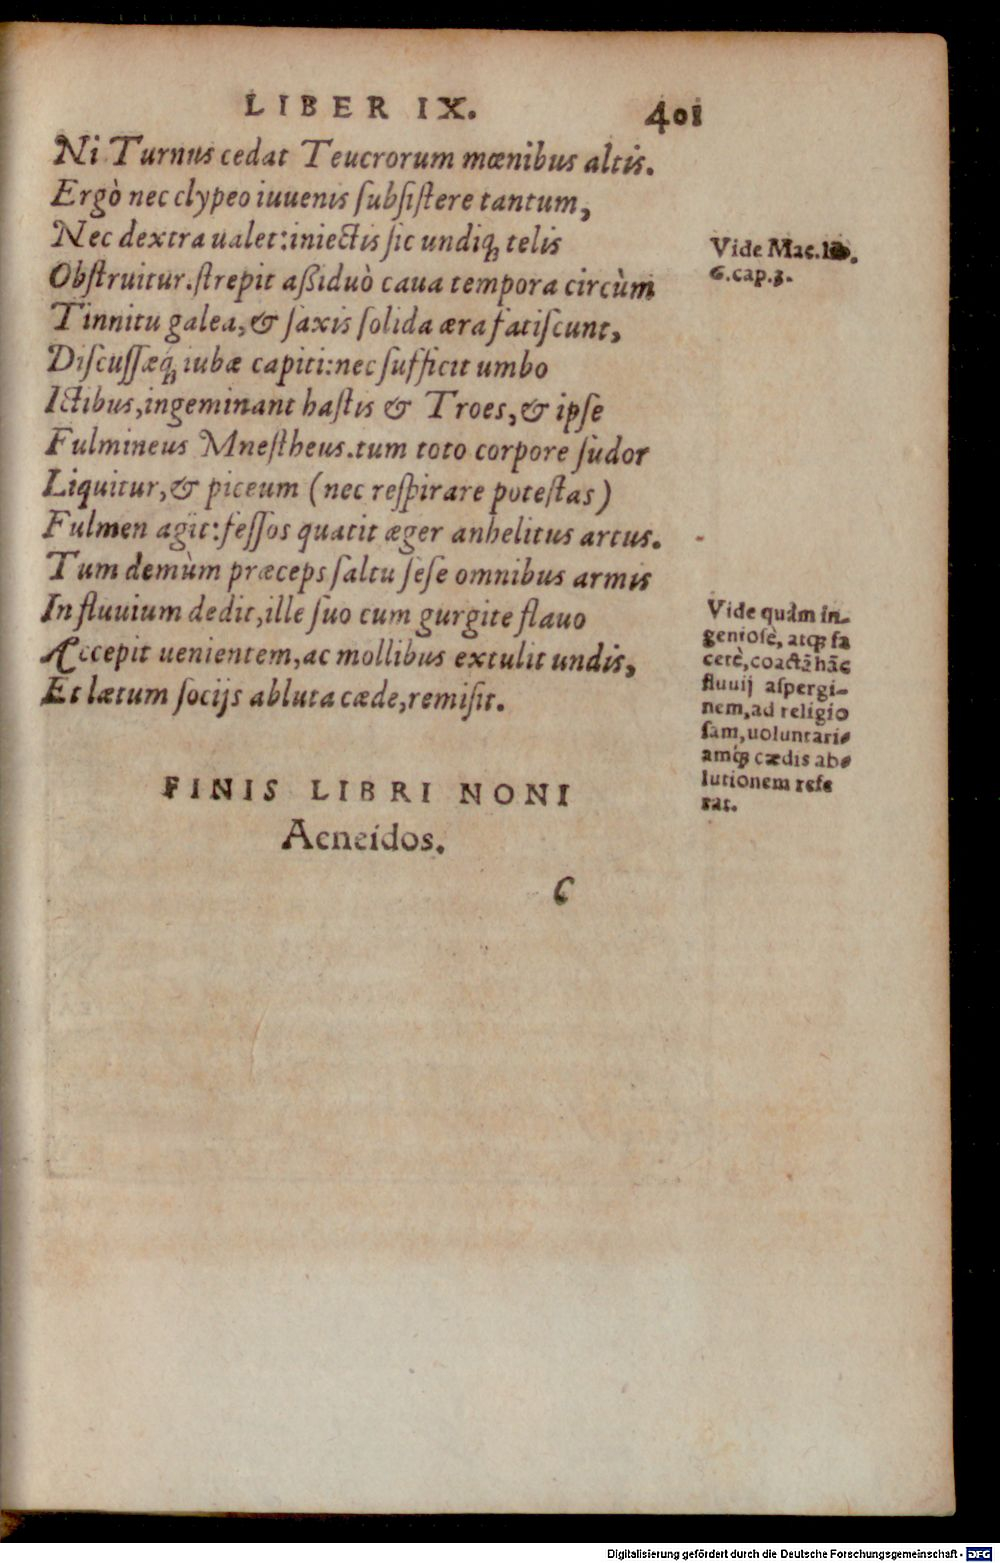 LIBER IX. 401
Ni Turnus cedat Teucrorum mœnibus altis.
Ergò nec clypeo iuuenis ſubſiſtere tantum,
Nec dextra ualet: iniectis ſic undiq; telis
Obſtruitur. ſtrepit aßiduò caua tempora circùm
Tinnitu galea, & ſaxis ſolida æra fatiſcunt,
Diſcuſſæq́; iubæ capiti: nec ſufficit umbo
Ictibus, ingeminant haſtis & Troes, & ipſe
Fulmineus Mneſtheus. tum toto corpore ſudor
Liquitur, & piceum (nec reſpirare poteſtas)
Fulmen agit: feſſos quatit æger anhelitus artus.
Tum demùm præceps ſaltu ſeſe omnibus armis
In fluuium dedit, ille ſuo cum gurgite flauo
Accepit uenientem, ac mollibus extulit undis,
Et lætum ſocijs abluta cæde, remiſit.
Vide Mac. lib.
6. cap. 3.
Vide quàm in-
genioſè, atq; fa
cetè, coactā hāc
fluuij aſpergi-
nem, ad religio
ſam, uoluntari-
amq́; cædis ab-
lutionem refe
rat.
FINIS LIBRI NONI
Aeneidos.
C
Digitalisierung gefördert durch die Deutsche Forschungsgemeinschaft - DFG